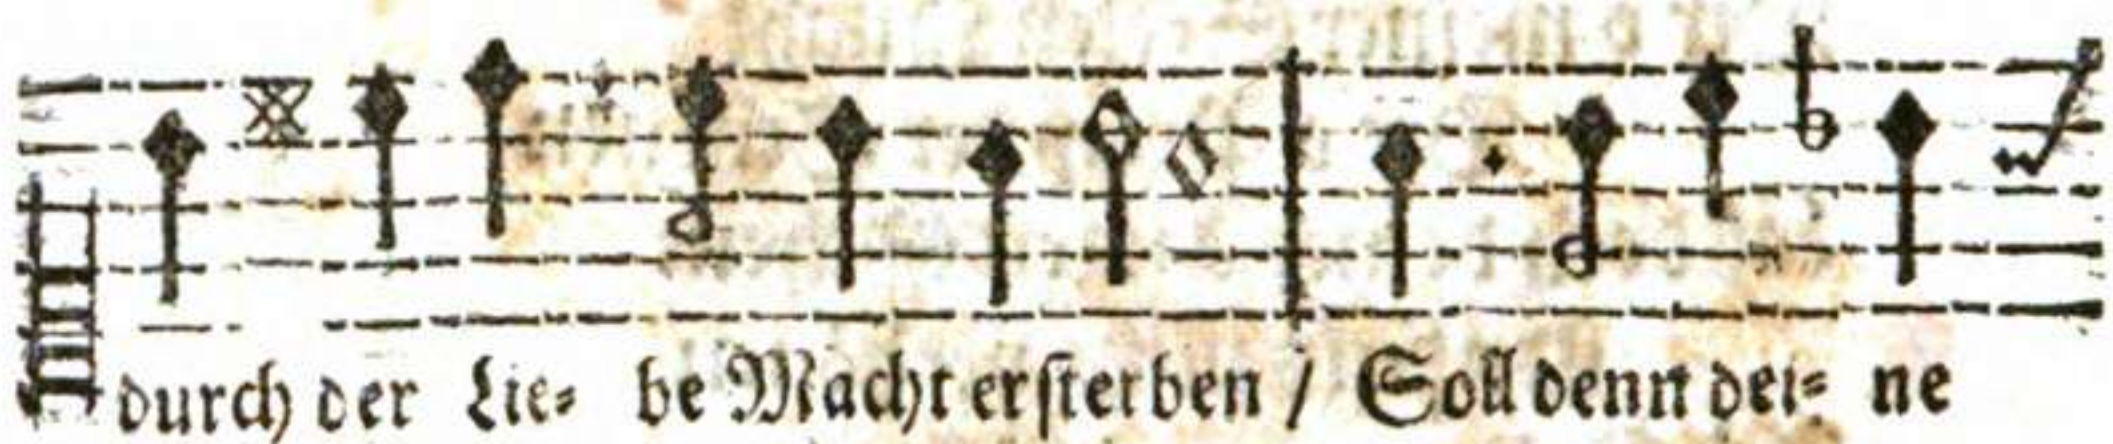 durch der Lie⸗ be Macht ersterben / Soll denn dei⸗ ne